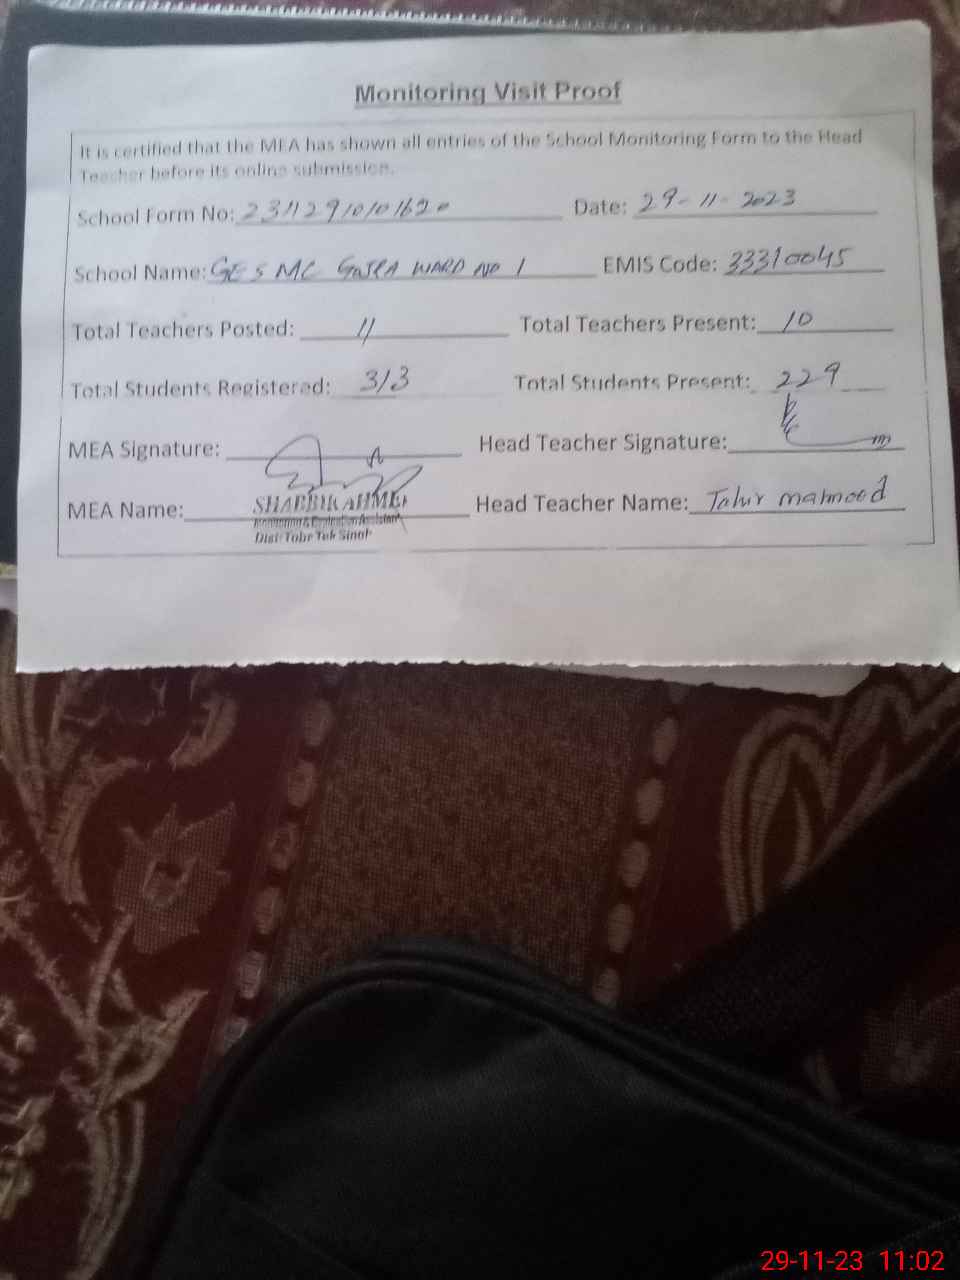 Monitoring Visit Proof
It is certified that the MEA has shown all entries of the School Monitoring Form to the Head
Teacher before its online submission.
School Form No: 23112910101620 Date: 29-11-2023
School Name: GES MC GOJRA WARD NO 1 EMIS Code: 33310045
Total Teachers Posted: 11 Total Teachers Present: 10
Total Students Registered: 313 Total Students Present: 229
MEA Signature: Head Teacher Signature:
MEA Name: SHABBIR AHMED Head Teacher Name: Tahir mahmood
Monitoring & Evaluation Assistant
Distt Toba Tek Singh
29-11-23 11:02